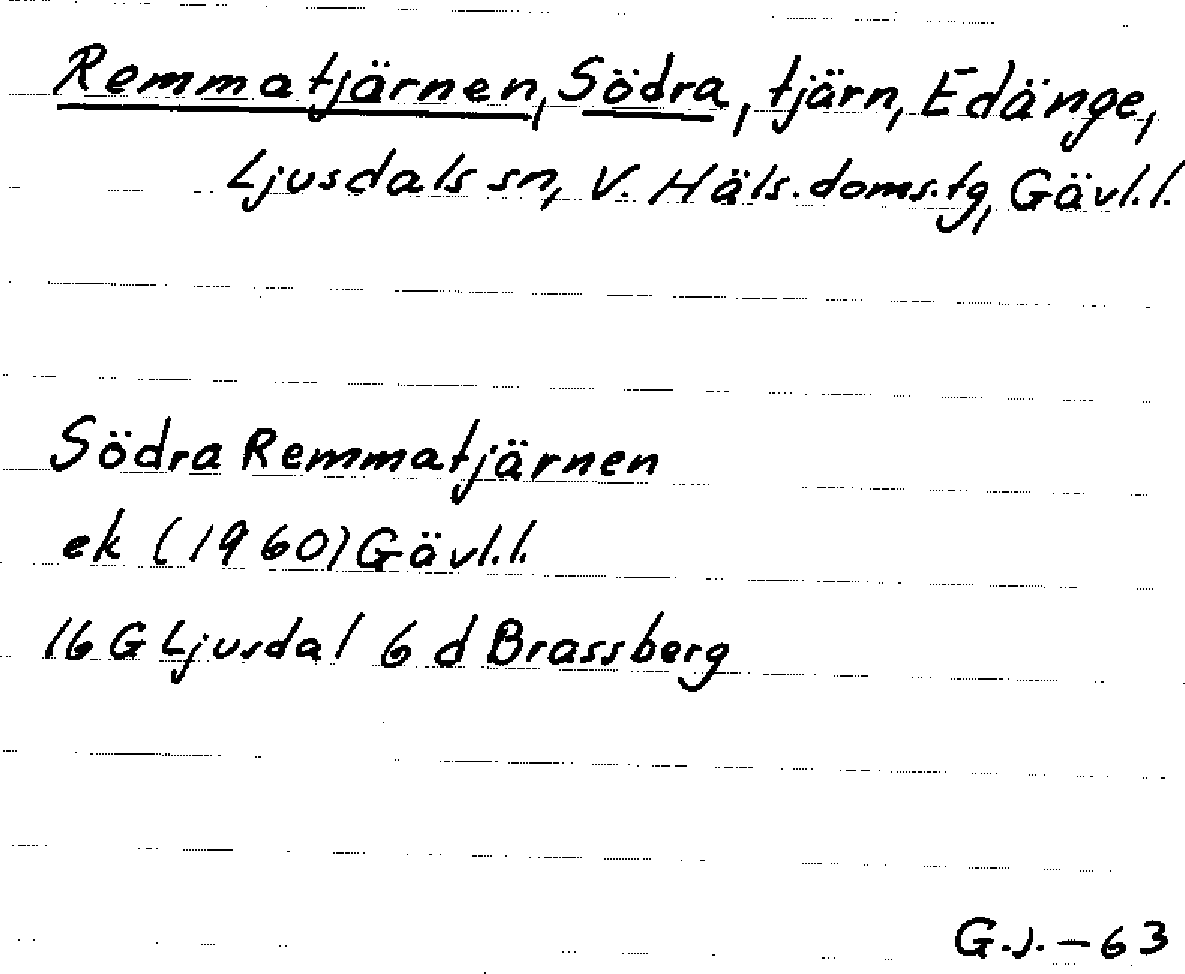 Remmatjärnen, Södra, tjärn, Edänge,
Ljusdals sn, V. Häls. doms. tg, Gävl. l.
Södra Remmatjärnen
ek (1960) Gävl. l.
16 G Ljusdal 6 d Brassberg
G.J. - 63